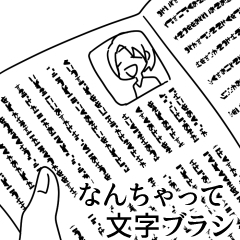 なんちゃって
文字ブラシ